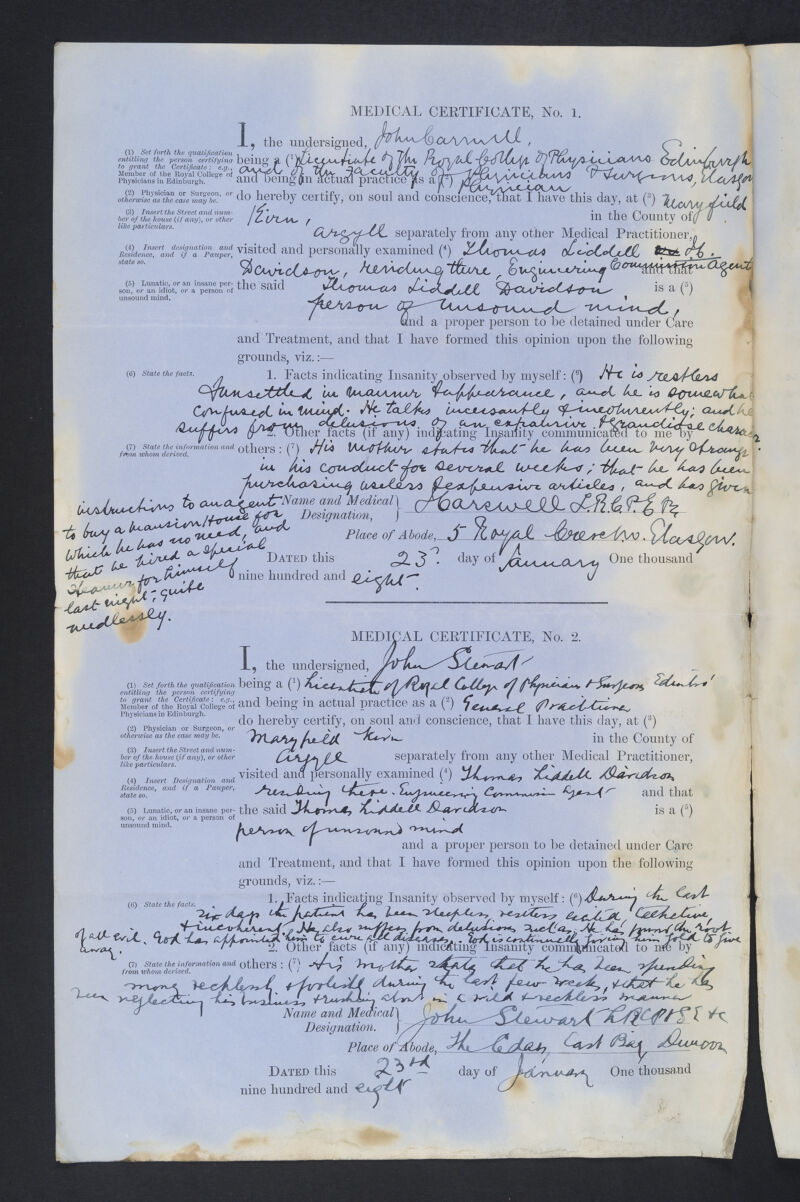 MEDICAL CERTIFICATE, No. 1.
I, the undersigned, John Carswell,
(1) Set forth the qualification entitling the person certifying to grant the Certificate: e.g., Member of the Royal College of Physicians in Edinburgh.
being a (1) Licentiate of the Royal College of Physicians Edinburgh
and of the Faculty of Physicians & Surgeons, Glasgow
and being in actual practice as a (2) Physician
(2) Physician or Surgeon, or otherwise as the case may be.
do hereby certify, on soul and conscience, that I have this day, at (3) Maryfield
(3) Insert the Street and number of the house (if any), or other like particulars.
Kirn, in the County of
Argyll separately from any other Medical Practitioner,
(4) Insert designation and Residence, and if a Pauper, state so.
visited and personally examined (4) Thomas Liddell
Davidson, residing there, Engineering Commission Agent
and that
(5) Lunatic, or an insane person, or an idiot, or a person of unsound mind.
the said Thomas Liddell Davidson is a (5)
person of unsound mind,
and a proper person to be detained under Care
and Treatment, and that I have formed this opinion upon the following
grounds, viz.:—
(6) State the facts.
1. Facts indicating Insanity observed by myself: (6) He is restless
& unsettled in manner & appearance, and he is somewhat
confused in mind. He talks incessantly & incoherently; and he
suffers from delusions of an expansive & grandiose character.
2. Other facts (if any) indicating Insanity communicated to me by
(7) State the information and from whom derived.
others: (7) His mother states that he has been very strange
in his conduct for several weeks; that he has been
purchasing useless & expensive articles, and has given
instructions to an agent
to buy a mansion House for
which he has no need, and
that he hired a special
steamer for himself
last night, quite
needlessly.
Name and Medical Designation, J Carswell L.R.C.P.E
Place of Abode, 5 Royal Crescent. Glasgow.
DATED this 23d. day of January One thousand
nine hundred and eight.
MEDICAL CERTIFICATE, No. 2.
I, the undersigned, John Stewart
(1) Set forth the qualification entitling the person certifying to grant the Certificate: e.g., Member of the Royal College of Physicians in Edinburgh.
being a (1) Licentiate of Royal College of Physicians & Surgeons Edinbro'
and being in actual practice as a (2) General Practitioner
(2) Physician or Surgeon, or otherwise as the case may be.
do hereby certify, on soul and conscience, that I have this day, at (3)
(3) Insert the Street and number of the house (if any), or other like particulars.
Maryfield Kirn in the County of
Argyll separately from any other Medical Practitioner,
(4) Insert Designation and Residence, and if a Pauper, state so.
visited and personally examined (4) Thomas Liddell Davidson
residing there. Engineering Commission Agent and that
(5) Lunatic, or an insane person, or an idiot, or a person of unsound mind.
the said Thomas Liddell Davidson is a (5)
person of unsound mind
and a proper person to be detained under Care
and Treatment, and that I have formed this opinion upon the following
grounds, viz.:—
(6) State the facts.
1. Facts indicating Insanity observed by myself: (6) During the last
six days the patient has been sleepless, restless excited, talkative,
& incoherent. He also suffers from delusions such as, He has found the root
of all evil. God has appointed him to cure all diseases. God is continually giving him gold to give
away.
2. Other facts (if any) indicating Insanity communicated to me by
(7) State the information and from whom derived.
others: (7) His mother states that he has been spending
money recklessly & foolishly during the last few weeks, & that he has
been neglecting his business & rushing about in a wild & reckless manner
Name and Medical Designation. John Stewart LRCP&SE &c
Place of Abode, The Cedars, East Bay, Dunoon
DATED this 23rd day of January One thousand
nine hundred and eight